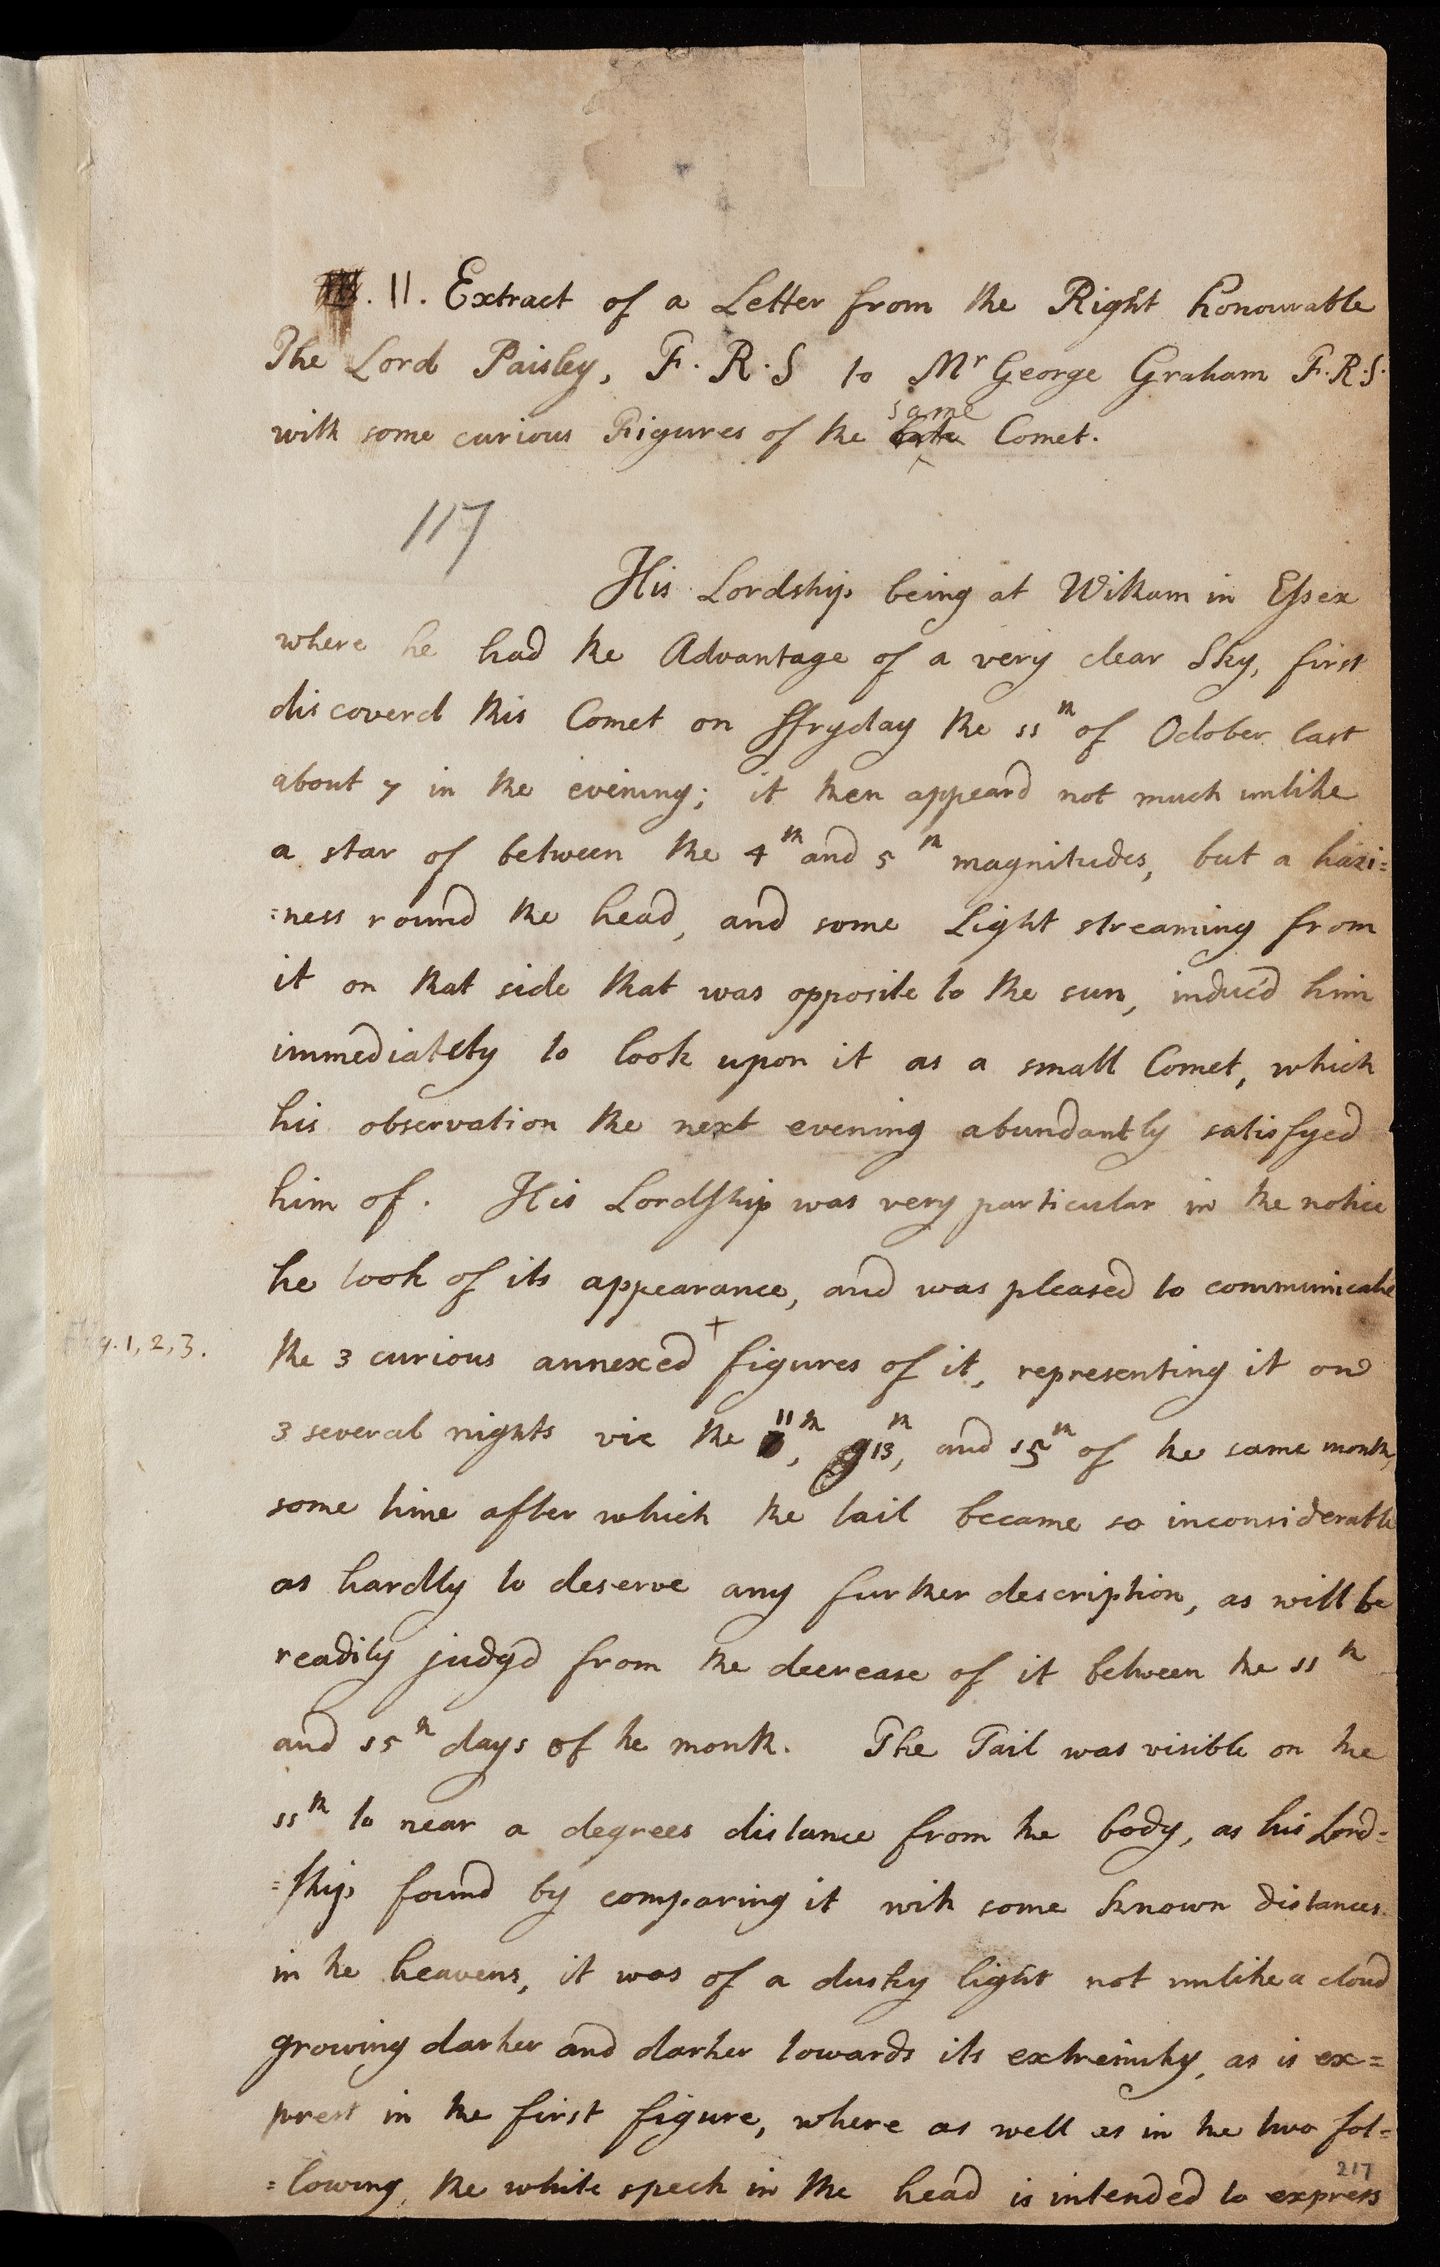 II. Extract of a Letter from the Right honourable
The Lord Paisley, F.R.S to Mr George Graham F.R.S.
same
with some curious Figures of the late Comet.
117
His Lordship being at Witham in Essex
where he had the Advantage of a very clear Sky, first
discoverd this Comet on ffryday the 11th of October last
about 7 in the evening; it then appeard not much unlike
a star of between the 4th and 5th magnitudes, but a hazi=
=ness round the head, and some Light streaming from
it on that side that was opposite to the sun, induc'd him
immediately to look upon it as a small Comet, which
his observation the next evening abundantly satisfyed
him of. His Lordship was very particular in the notice
he took of its appearance, and was pleased to communicate
Fig. 1, 2, 3.
the 3 curious annexed + figures of it, representing it on
3 several nights viz the 11th, 13th, and 15th of the same month,
some time after which the tail became so inconsiderable
as hardly to deserve any further description, as will be
readily judg'd from the decrease of it between the 11th
and 15th days of the month. The Tail was visible on the
11th to near a degrees distance from the body, as his Lord=
=ship found by comparing it with some known distances
in the heavens, it was of a dusky light not unlike a cloud
growing darker and darker towards its extremity, as is ex=
prest in the first figure, where as well as in the two fol=
=lowing, the white speck in the head is intended to express
217